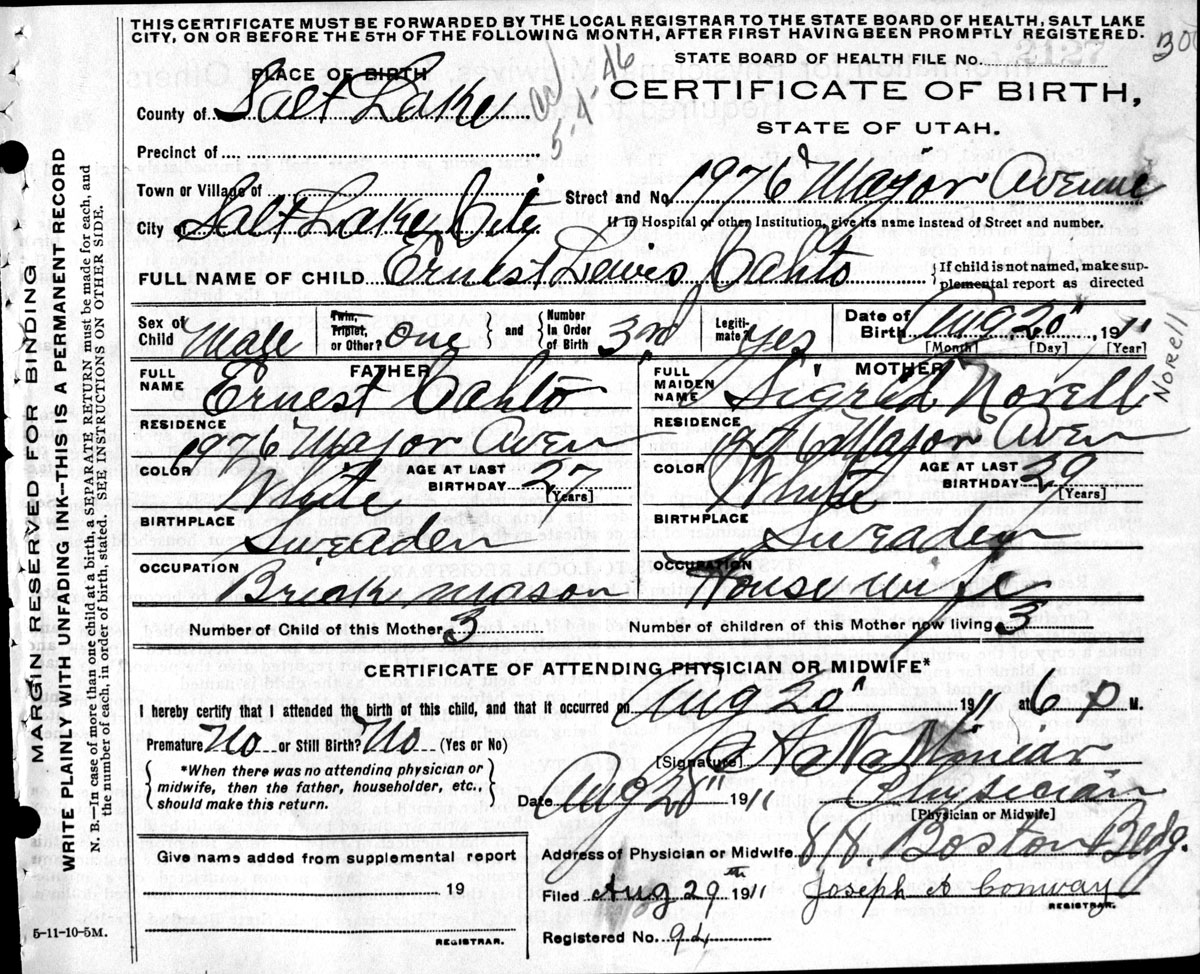 THIS CERTIFICATE MUST BE FORWARDED BY THE LOCAL REGISTRAR TO THE STATE BOARD OF HEALTH, SALT LAKE
CITY, ON OR BEFORE THE 5TH OF THE FOLLOWING MONTH, AFTER FIRST HAVING BEEN PROMPTLY REGISTERED.
STATE BOARD OF HEALTH FILE No.
PLACE OF BIRTH
CERTIFICATE OF BIRTH,
County of Salt Lake
STATE OF UTAH.
Precinct of
Town or Village of
Street and No. 1976 Major Avenue
City of Salt Lake City
If in Hospital or other Institution, give its name instead of Street and number.
FULL NAME OF CHILD Ernest Lewis Cahto
If child is not named, make sup-
plemental report as directed
Sex of Child Male Twin, Triplet, or Other? One and Number In Order of Birth 3rd Legiti-mate? Yes Date of Birth Aug 20" 1911
[Month] [Day] [Year]
Norell
FATHER
FULL NAME Ernest Cahto
RESIDENCE 1976 Major Aven
COLOR White AGE AT LAST BIRTHDAY 27 [Years]
BIRTHPLACE Sweaden
OCCUPATION Brick mason
MOTHER
FULL MAIDEN NAME Sigrid Norell
RESIDENCE 1976 Major Aven
COLOR White AGE AT LAST BIRTHDAY 29 [Years]
BIRTHPLACE Sweaden
OCCUPATION House wife
Number of Child of this Mother 3 Number of children of this Mother now living 3
CERTIFICATE OF ATTENDING PHYSICIAN OR MIDWIFE*
I hereby certify that I attended the birth of this child, and that it occurred on Aug 20" 1911 at 6 P M.
Premature? No or Still Birth? No (Yes or No)
[Signature]
*When there was no attending physician or
midwife, then the father, householder, etc.,
should make this return.
Date Aug 28" 1911 Physician
[Physician or Midwife]
Give name added from supplemental report
Address of Physician or Midwife 818. Boston Bldg.
19
Filed Aug 29th 1911 Joseph A Conway
REGISTRAR.
REGISTRAR.
Registered No. 94
5-11-10-5M.
MARGIN RESERVED FOR BINDING
WRITE PLAINLY WITH UNFADING INK—THIS IS A PERMANENT RECORD
N. B.—In case of more than one child at a birth, a SEPARATE RETURN must be made for each, and
the number of each, in order of birth, stated. SEE INSTRUCTIONS ON OTHER SIDE.